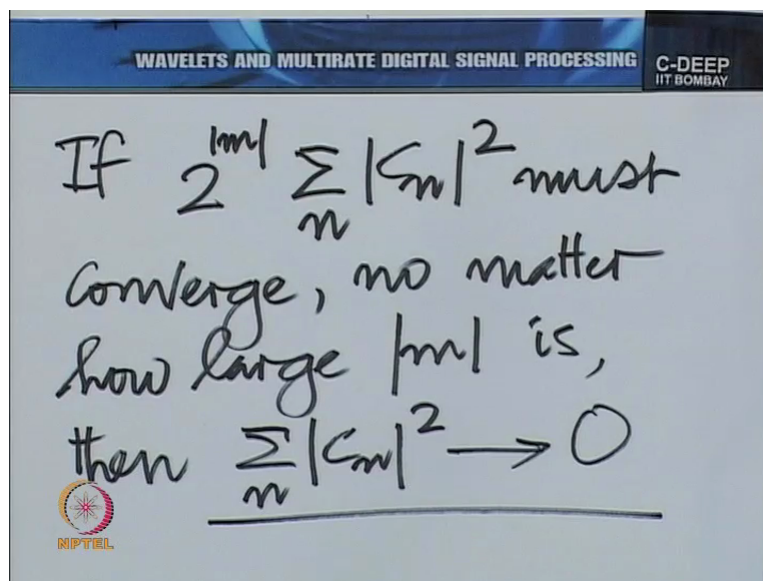 WAVELETS AND MULTIRATE DIGITAL SIGNAL PROCESSING
C-DEEP
IIT BOMBAY
If 2^|m| Σ_n |C_n|^2 must
converge, no matter
how large |m| is,
then Σ_n |C_n|^2 → 0
NPTEL